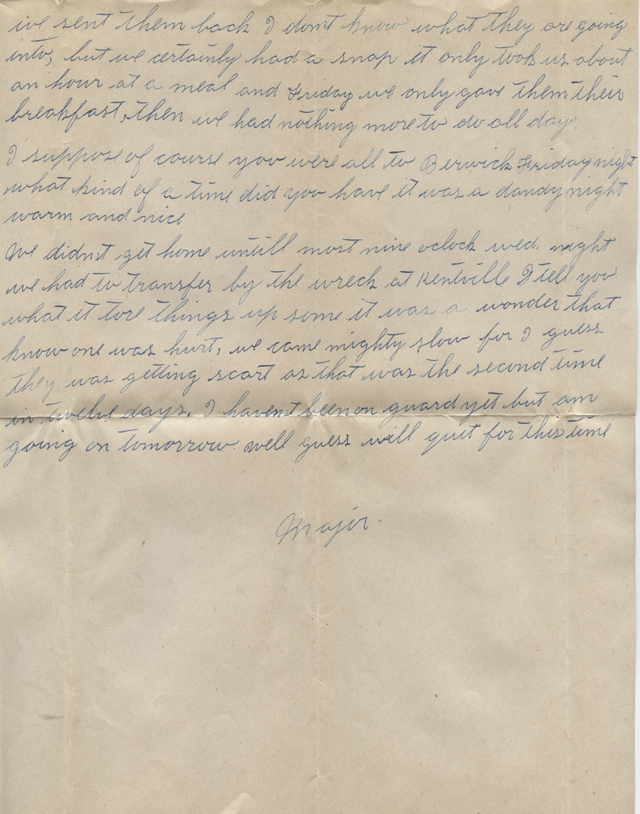 ive sent them back I dont know what they are going
into, but we certainly had a snap it only took us about
an hour at a meal and Friday we only gave them their
breakfast, then we had nothing more to do all day.
I suppose of course you were all to Berwick Friday night
what kind of a time did you have it was a dandy night
warm and nice
We didn't get home untill most nine oclock wed. night
we had to transfer by the wreck at Kentville I tell you
what it tore things up some it was a wonder that
know one was hurt, we came mighty slow for I guess
they was getting scart as that was the second time
in twelve days. I havent been on guard yet but am
going on tomorrow. well guess will quit for this time
Major.